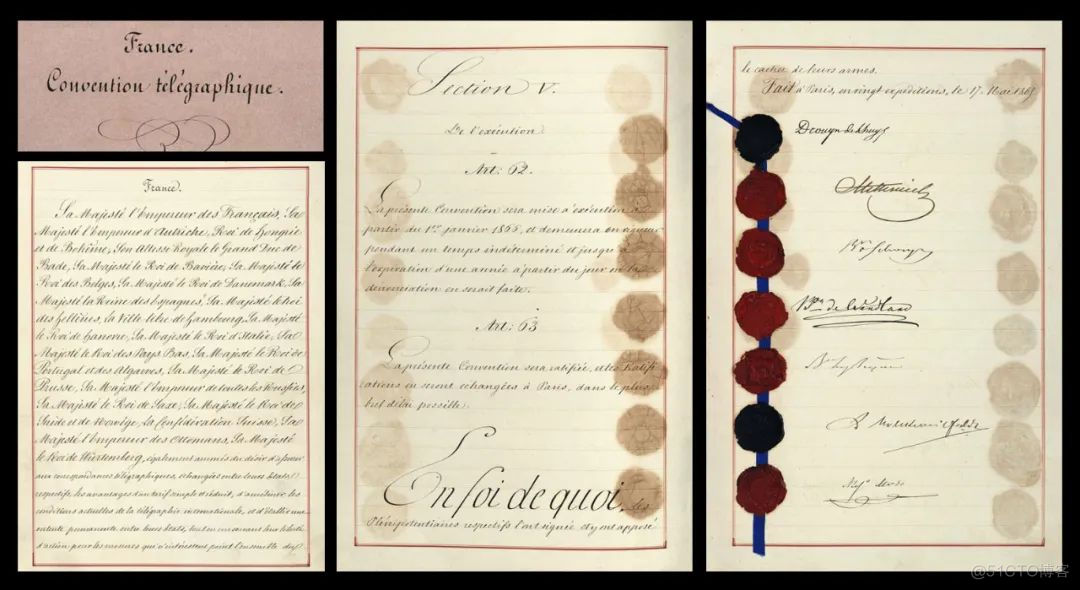 France.
Convention télégraphique.
France.
Sa Majesté l'Empereur des Français, Sa
Majesté l'Empereur d'Autriche, Roi de Hongrie
et de Bohême, Son Altesse Royale le Grand Duc de
Bade, Sa Majesté le Roi de Bavière, Sa Majesté le
Roi des Belges, Sa Majesté le Roi de Danemark, Sa
Majesté la Reine des Espagnes, Sa Majesté le Roi
des Hellènes, la Ville libre de Hambourg, Sa Majesté
le Roi de Hanovre, Sa Majesté le Roi d'Italie, Sa
Majesté le Roi des Pays Bas, Sa Majesté le Roi de
Portugal et des Algarves, Sa Majesté le Roi de
Prusse, Sa Majesté l'Empereur de toutes les Russies,
Sa Majesté le Roi de Saxe, Sa Majesté le Roi de
Suède et de Norvège, la Confédération Suisse, Sa
Majesté l'Empereur des Ottomans, Sa Majesté
le Roi de Würtemberg, également animés du désir d'assurer
aux correspondances télégraphiques, échangées entre leurs États
respectifs, les avantages d'un tarif simple et réduit, d'améliorer les
conditions actuelles de la télégraphie internationale, et d'établir une
entente permanente entre leurs États, tout en conservant leur liberté
d'action pour les mesures qui n'intéressent point l'ensemble du
Section V.
De l'exécution
Art: 62.
La présente Convention sera mise à exécution à
partir du 1er janvier 1866, et demeurera en vigueur
pendant un temps indéterminé et jusqu'à
l'expiration d'une année à partir du jour où la
dénonciation en serait faite.
Art: 63
La présente Convention sera ratifiée, et les Ratifi
cations en seront échangées à Paris, dans le plus
bref délai possible.
En foi de quoi, les
Plénipotentiaires respectifs l'ont signée et y ont apposé
le cachet de leurs armes.
Fait à Paris, en vingt expéditions, le 17 Mai 1865
Drouyn de Lhuys
Metternich
Bon de Wendland
@51CTO博客